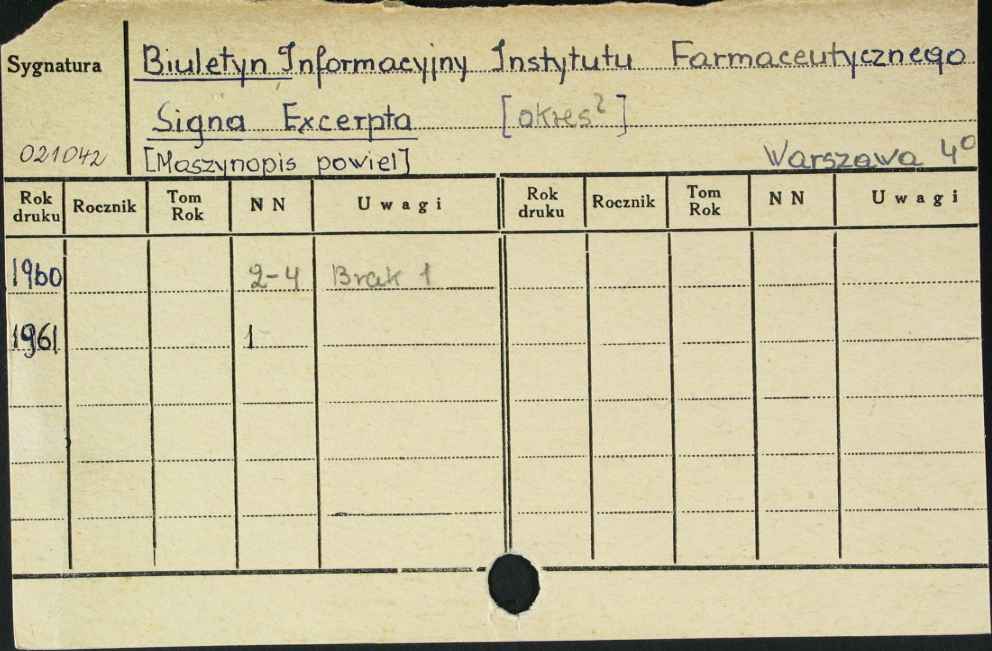 Sygnatura
Biuletyn Informacyjny Instytutu Farmaceutycznego
Signa Excerpta [okres?]
021042
[Maszynopis powiel] Warszawa 4º
Rok druku Rocznik Tom Rok N N U w a g i Rok druku Rocznik Tom Rok N N U w a g i
1960 2-4 Brak 1
1961 1